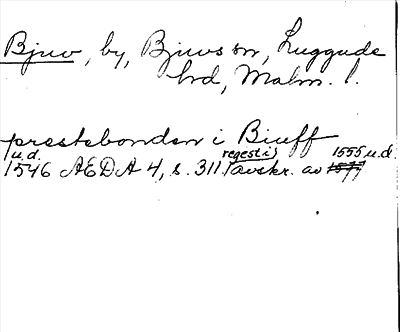 Bjuv, by, Bjuvs sn, Luggude
hd, Malm. l.
prestebonden i Biuff
u.d. regest i 1555 u.d.
1546 AEDA 4, s. 311 (avskr. av 1577